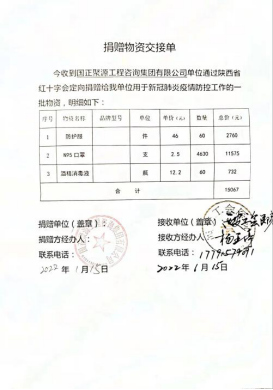 捐赠物资交接单
今收到国正聚源工程咨询集团有限公司单位通过陕西省
红十字会定向捐赠给我单位用于新冠肺炎疫情防控工作的一
批物资，明细如下：
序号 物资名称 品牌型号 单位 单价（元） 数量 金额（元）
1 防护服 件 46 60 2760
2 N95 口罩 支 2.5 4630 11575
3 酒精消毒液 瓶 12.2 60 732
合 计 15067
捐赠单位（盖章）： 接收单位（盖章）：
捐赠方经办人： 接收方经办人：
联系电话： 联系电话：
2022 年 1 月 15 日 2022 年 1 月 15 日